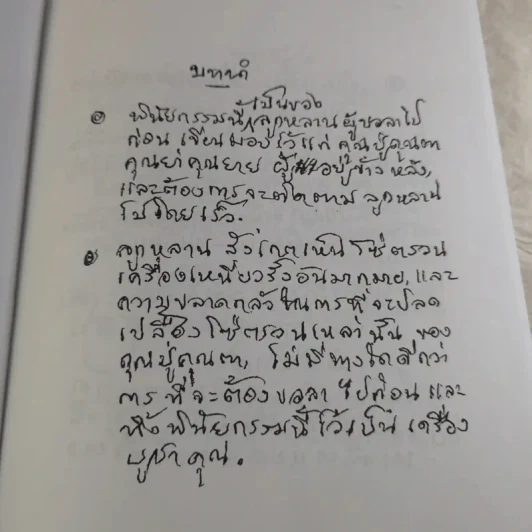 บทนำ
๏ พินัยกรรมนี้ เป็นของ ลูกหลาน ผู้ขอลาไป
ก่อน เขียนมอบไว้แก่ คุณปู่คุณตา
คุณย่าคุณยาย ผู้อยู่ข้างหลัง,
และต้องการจะติดตาม ลูกหลาน
ไปโดยเร็ว.
๏ ลูกหลาน สังเกตเห็นโซ่ตรวน
เครื่องเหนี่ยวรั้งอันมากมาย, และ
ความขลาดกลัวในการที่จะปลด
เปลื้องโซ่ตรวนเหล่านั้น ของ
คุณปู่คุณตา, ไม่มีทางใดดีกว่า
การที่จะต้องขอลา ไปก่อน และ
ทิ้งพินัยกรรมนี้ไว้เป็น เครื่อง
บูชาคุณ.